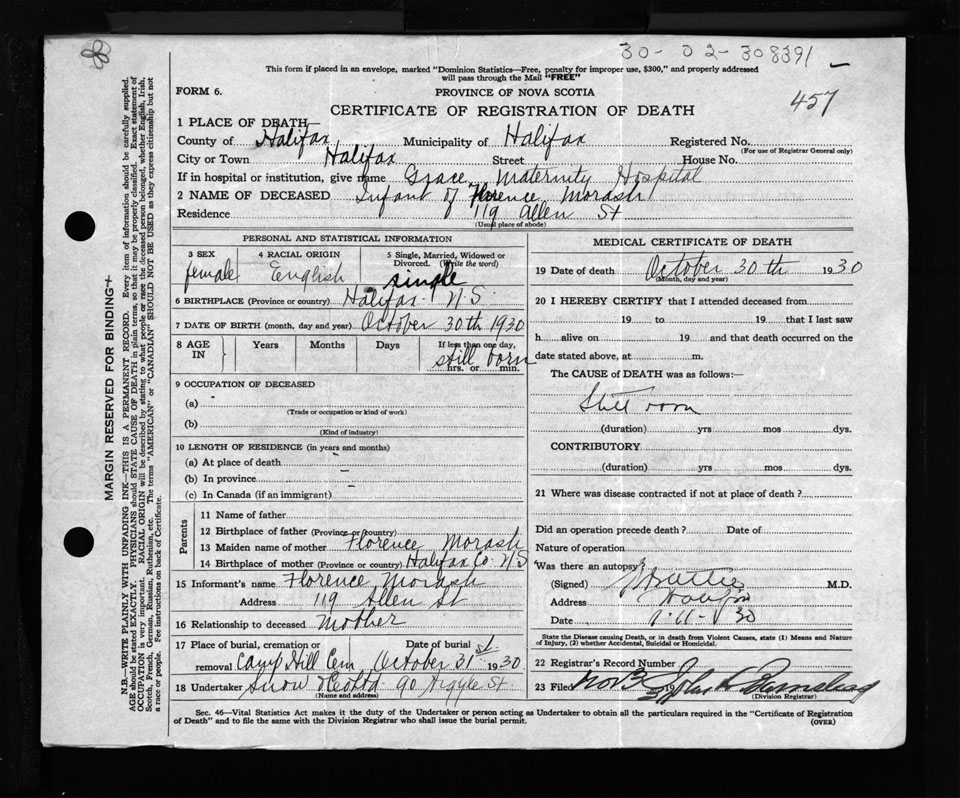 30-02-308391
This form if placed in an envelope, marked "Dominion Statistics—Free, penalty for improper use, $300," and properly addressed
will pass through the Mail "FREE"
FORM 6.
PROVINCE OF NOVA SCOTIA
457
CERTIFICATE OF REGISTRATION OF DEATH
1 PLACE OF DEATH—
County of Halifax Municipality of Halifax Registered No.
(For use of Registrar General only)
City or Town Halifax Street House No.
If in hospital or institution, give name Grace Maternity Hospital
2 NAME OF DECEASED Infant of Florence Morash
Residence 119 Allen St
(Usual place of abode)
PERSONAL AND STATISTICAL INFORMATION
3 SEX 4 RACIAL ORIGIN 5 Single, Married, Widowed or
Divorced. (Write the word)
female English single
6 BIRTHPLACE (Province or country) Halifax N.S.
7 DATE OF BIRTH (month, day and year) October 30th 1930
8 AGE IN Years Months Days If less than one day,
still born
hrs. or min.
9 OCCUPATION OF DECEASED
(a) -
(Trade or occupation or kind of work)
(b)
(Kind of industry)
10 LENGTH OF RESIDENCE (in years and months)
(a) At place of death
(b) In province
(c) In Canada (if an immigrant)
Parents
11 Name of father
12 Birthplace of father (Province or country)
13 Maiden name of mother Florence Morash
14 Birthplace of mother (Province or country) Halifax Co N.S
15 Informant's name Florence Morash
Address 119 Allen St
16 Relationship to deceased Mother
17 Place of burial, cremation or Date of burial
removal Camp Hill Cem October 31st 1930
18 Undertaker Snow & Co Ltd 90 Argyle St.
(Name and address)
MEDICAL CERTIFICATE OF DEATH
19 Date of death October 30th 1930
(Month, day and year)
20 I HEREBY CERTIFY that I attended deceased from
19 to 19 that I last saw
h alive on 19 and that death occurred on the
date stated above, at m.
The CAUSE of DEATH was as follows:—
Still born
(duration) yrs mos dys.
CONTRIBUTORY
(duration) yrs mos dys.
21 Where was disease contracted if not at place of death?
Did an operation precede death? Date of
Nature of operation
Was there an autopsy?
(Signed) M.D.
Address Halifax
Date 30
State the Disease causing Death, or in death from Violent Causes, state (1) Means and Nature
of Injury, (2) whether Accidental, Suicidal or Homicidal.
22 Registrar's Record Number
23 Filed Nov 3 19 John
(Division Registrar)
Sec. 46—Vital Statistics Act makes it the duty of the Undertaker or person acting as Undertaker to obtain all the particulars required in the "Certificate of Registration
of Death" and to file the same with the Division Registrar who shall issue the burial permit.
(OVER)
MARGIN RESERVED FOR BINDING
N.B.—WRITE PLAINLY WITH UNFADING INK—THIS IS A PERMANENT RECORD. Every item of information should be carefully supplied.
AGE should be stated EXACTLY. PHYSICIANS should STATE CAUSE OF DEATH in plain terms, so that it may be properly classified. Exact statement of
OCCUPATION is very important. RACIAL ORIGIN will be described by stating to what people or race the deceased person belonged, whether English, Irish,
Scotch, French, German, Russian, Ruthenian, etc. The terms "AMERICAN" or "CANADIAN" SHOULD NOT BE USED as they express citizenship but not
a race or people. See instructions on back of Certificate.